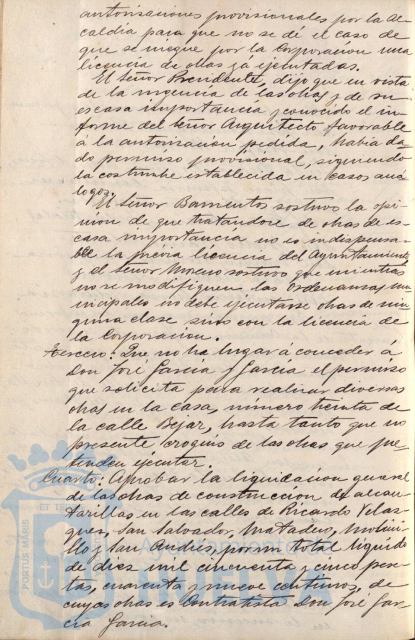 autorizaciones provisionales por la Al-
caldia para que no se dé el caso de
que se niegue por la Corporacion una
licencia de obras ya ejecutadas.
El Señor Presidente, dijo que en vista
de la urgencia de las obras y de su
escasa importancia y conocido el in-
forme del Señor Arquitecto favorable
á la autorizacion pedida, habia da-
do permiso provisional, siguiendo
la costumbre establecida en casos aná-
logos.
El Señor Barrientos sostuvo la opi-
nion de que tratándose de obras de es-
casa importancia no es indispensa-
ble la previa licencia del Ayuntamiento
y el Señor Moreno sostuvo que mientras
no se modifiquen las Ordenanzas mu-
nicipales no debe ejecutarse obras de nin-
guna clase sino con la licencia de
la Corporacion.
Tercero: Que no ha lugar á conceder á
Don José Garcia y Garcia el permiso
que solicita para realizar diversas
obras en la casa, número treinta de
la calle Bejar, hasta tanto que no
presente, croquis de las obras que pre-
tenden ejecutar.
Cuarto: Aprobar la liquidacion general
de las obras de construccion de alcan-
tarillas en las calles de Ricardo Velaz-
quez, San Salvador, Mataderos, Molini-
llo y San Andrés, por un total liquido
de diez mil cincuenta y cinco pese-
tas, cuarenta y nueve centimos, de
cuyas obras es Contratista Don José Gar-
cia Garcia.
PORTUS MARIS